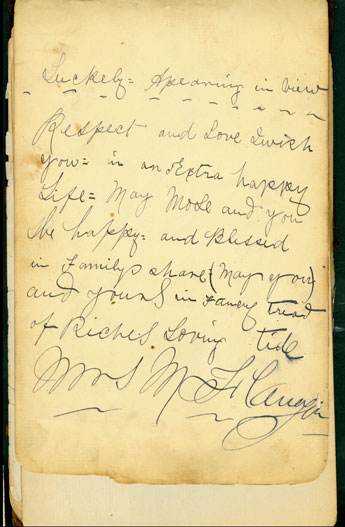 Luckely = Apearing in view
Respect and Love I wish
you = in an Extra happy
Life = May Mode and you
be happy = and Blessed
in Familys share (May you)
and yours in tread
of Riches Loving tide
Mrs M Flanagin